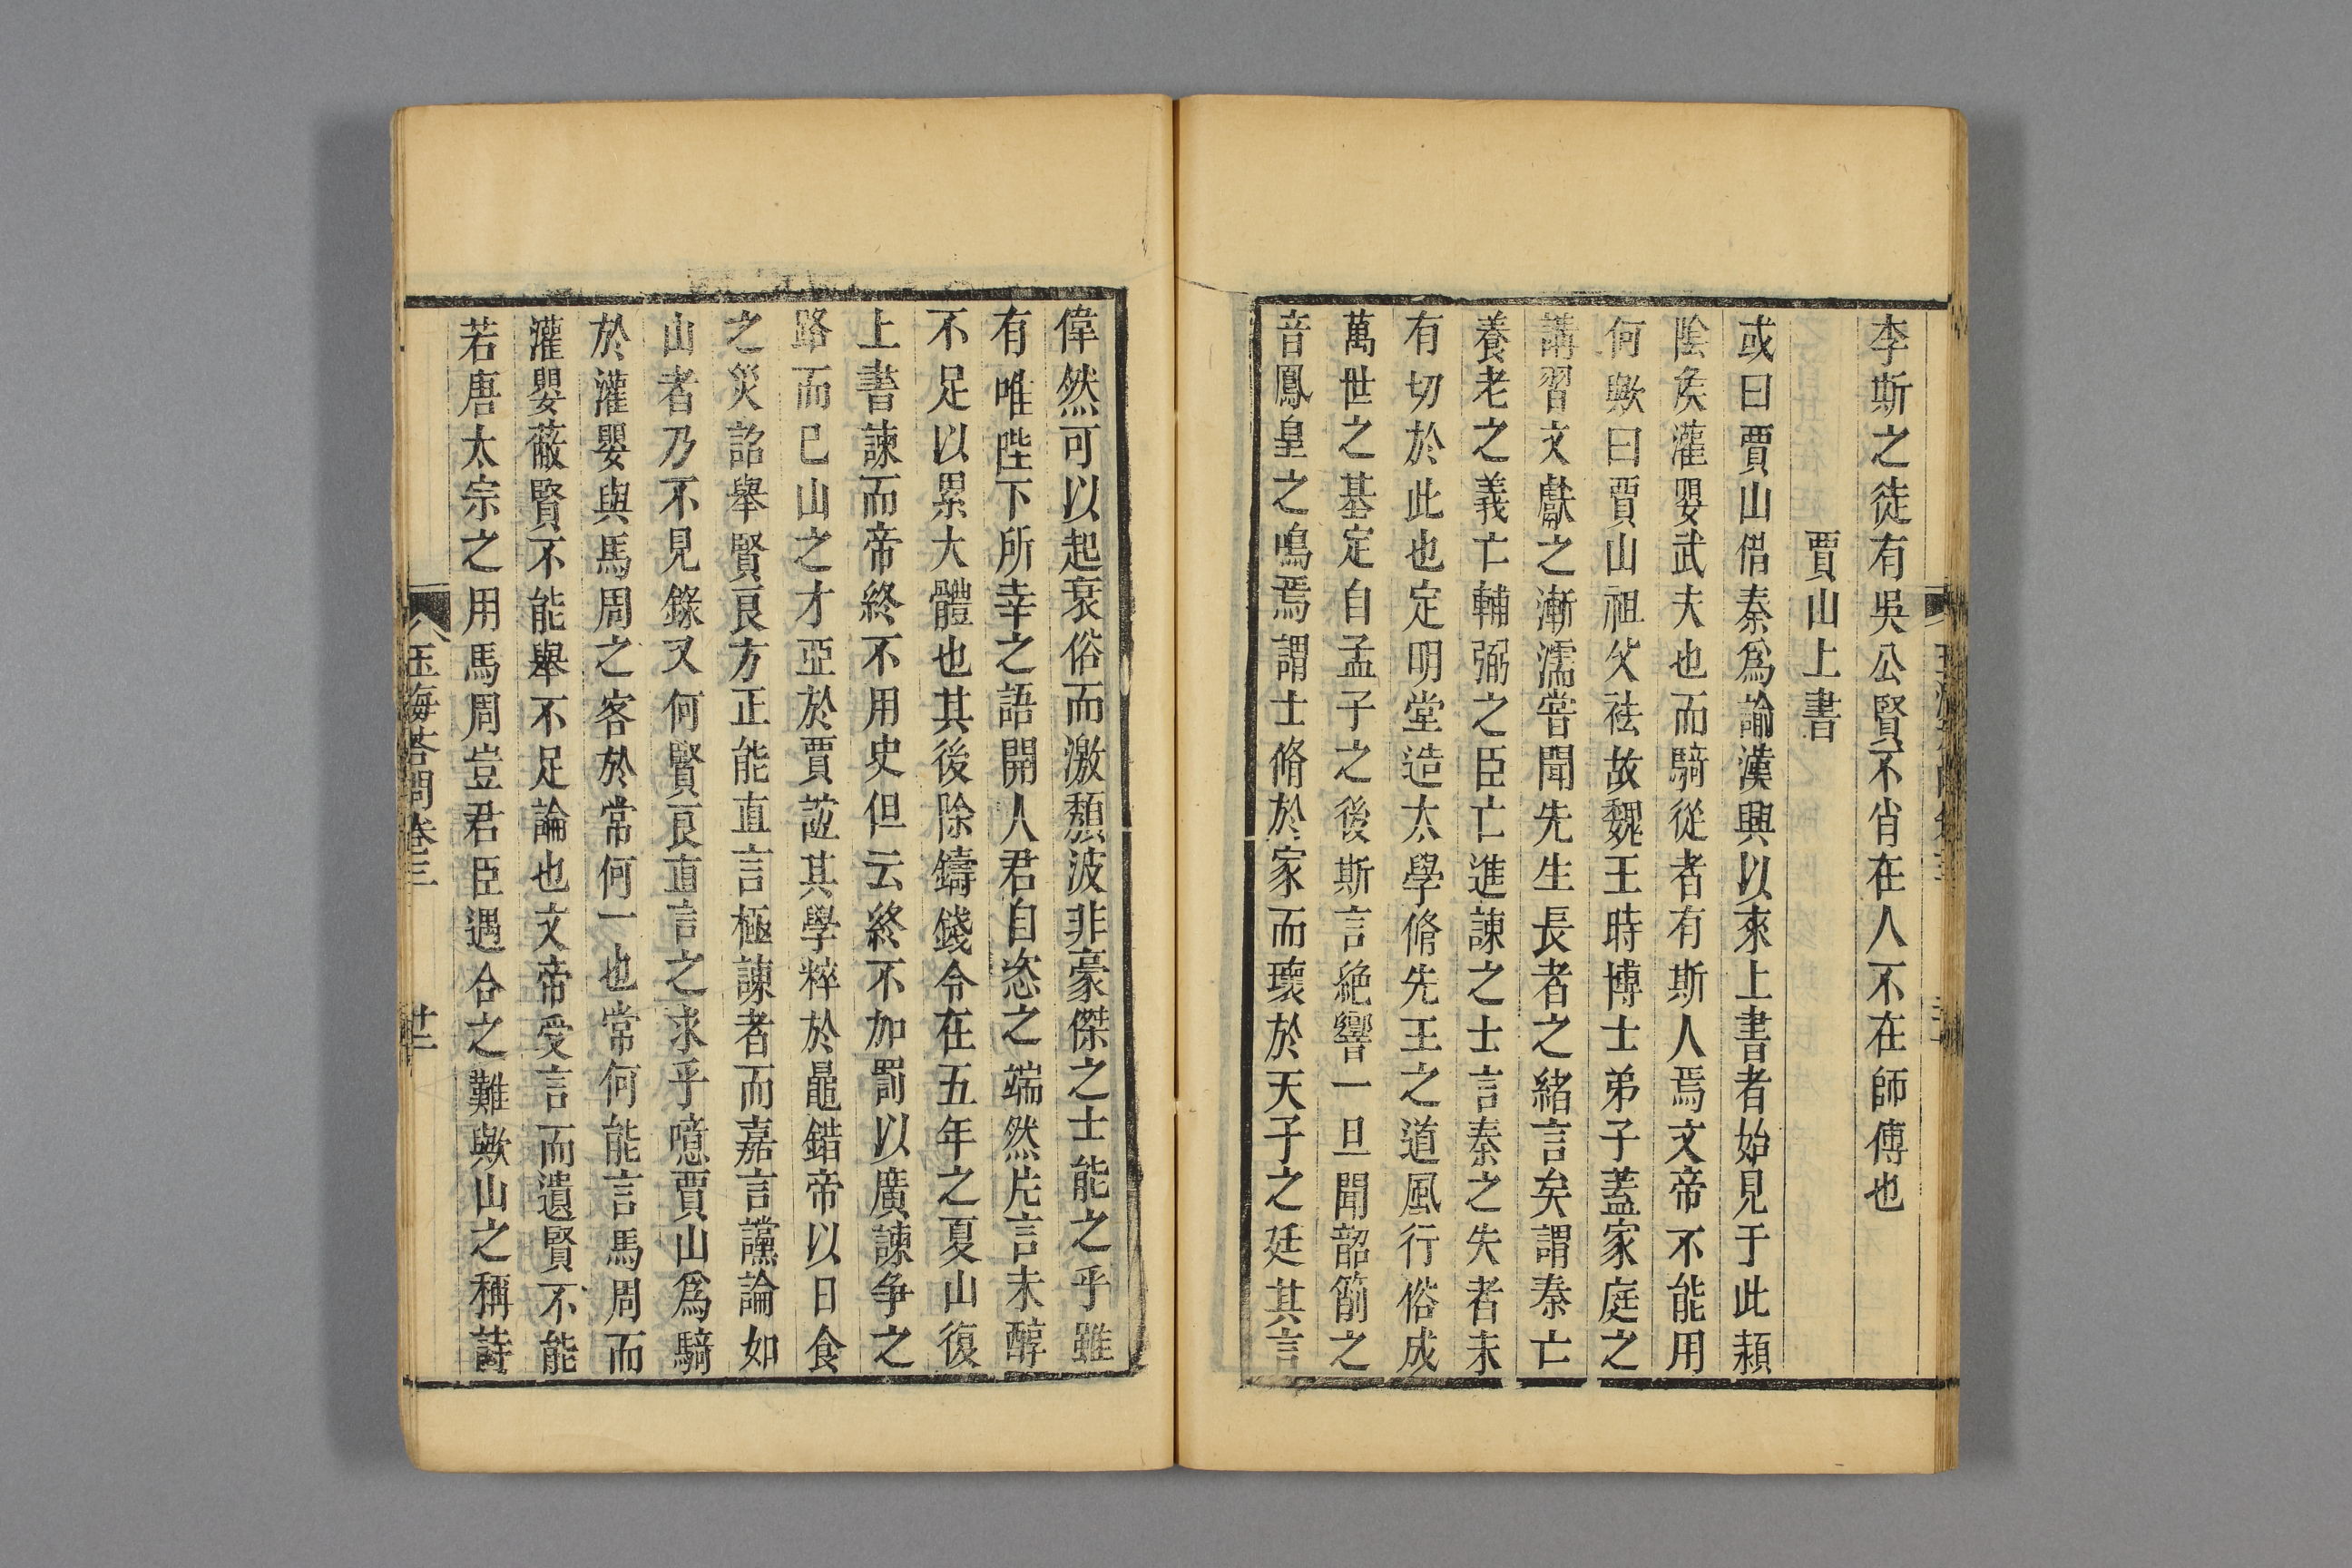 李斯之徒有吳公賢不肖在人不在師傅也
賈山上書
或曰賈山借秦爲諭漢興以來上書者始見于此潁
陰矦灌嬰武夫也而騎從者有斯人焉文帝不能用
何歟曰賈山祖父祛故魏王時博士弟子蓋家庭之
講習文獻之漸濡甞聞先生長者之緒言矣謂秦亡
養老之義亡輔弼之臣亡進諫之士言秦之失者未
有切於此也定明堂造太學脩先王之道風行俗成
萬世之基定自孟子之後斯言絕響一旦聞韶箾之
音鳳皇之鳴焉謂士脩於家而壞於天子之廷其言
偉然可以起衰俗而激頽波非豪傑之士能之乎雖
有唯陛下所幸之語開人君自恣之端然片言未醇
不足以累大體也其後除鑄錢令在五年之夏山復
上書諫而帝終不用史但云終不加罰以廣諫爭之
路而已山之才亞於賈誼其學粹於鼂錯帝以日食
之災詔舉賢良方正能直言極諫者而嘉言讜論如
山者乃不見錄又何賢良直言之求乎噫賈山爲騎
於灌嬰與馬周之客於常何一也常何能言馬周而
灌嬰蔽賢不能舉不足論也文帝受言而遺賢不能
若唐太宗之用馬周豈君臣遇合之難歟山之稱詩
玉海荅問卷三
廿二